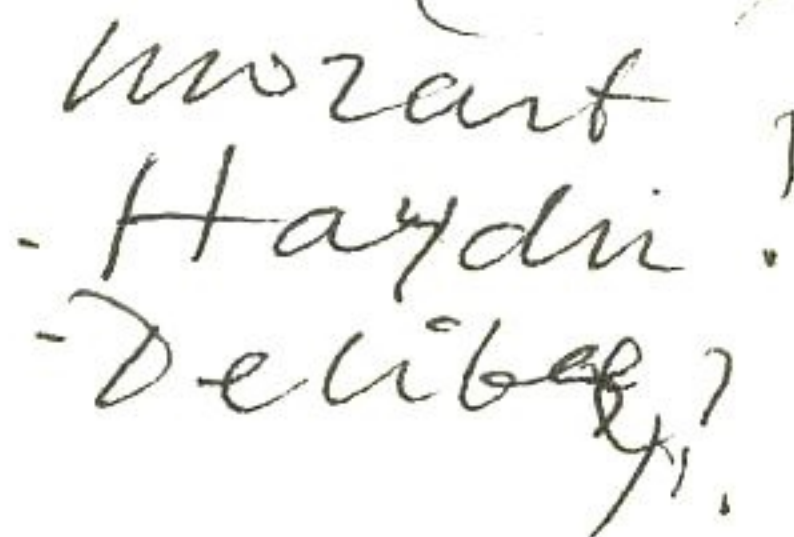 Mozart
- Haydn
- Delibes?